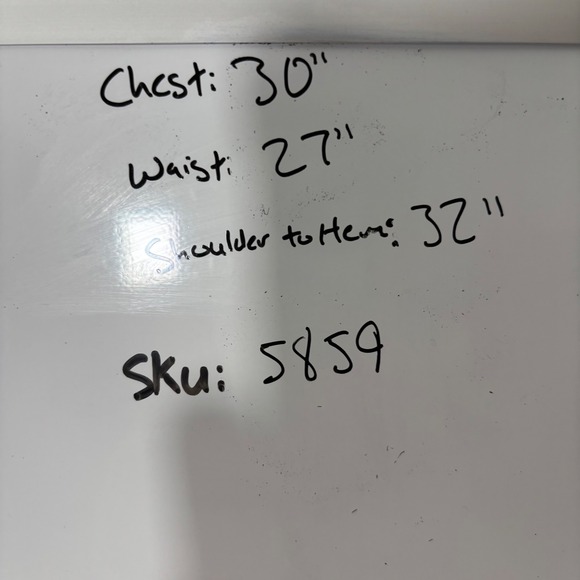 Chest: 30"
Waist: 27"
Shoulder to Hem: 32"
SKU: 5859